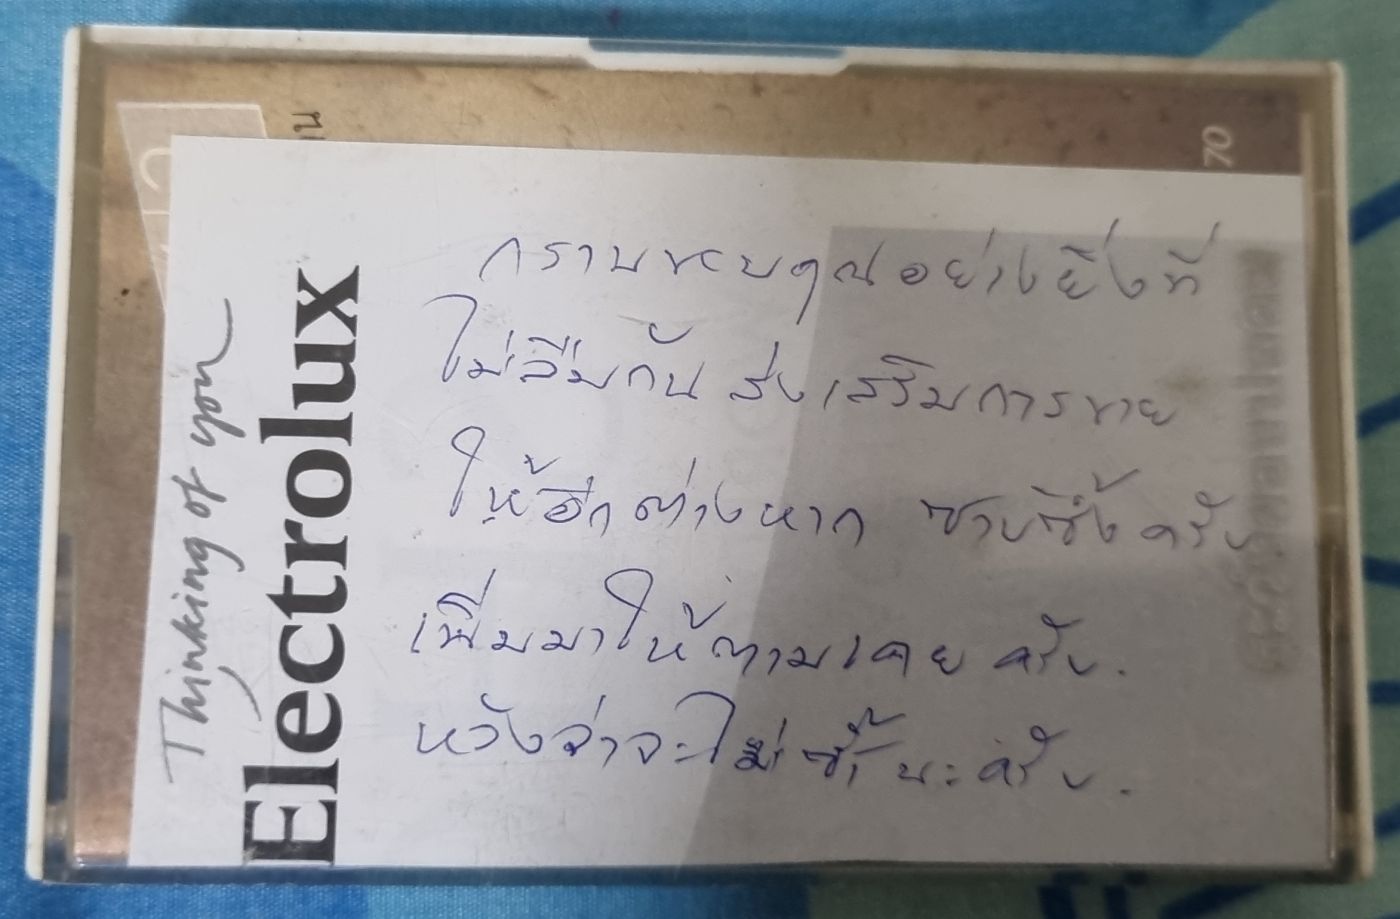 Thinking of you
Electrolux
กราบขอบคุณอย่างยิ่งที่
ไม่ลืมกัน ส่งเสริมการขาย
ให้อีกต่างหาก ซาบซึ้งครับ
เพิ่มมาให้ตามเคยครับ.
หวังว่าจะไม่ซ้ำนะครับ.
70